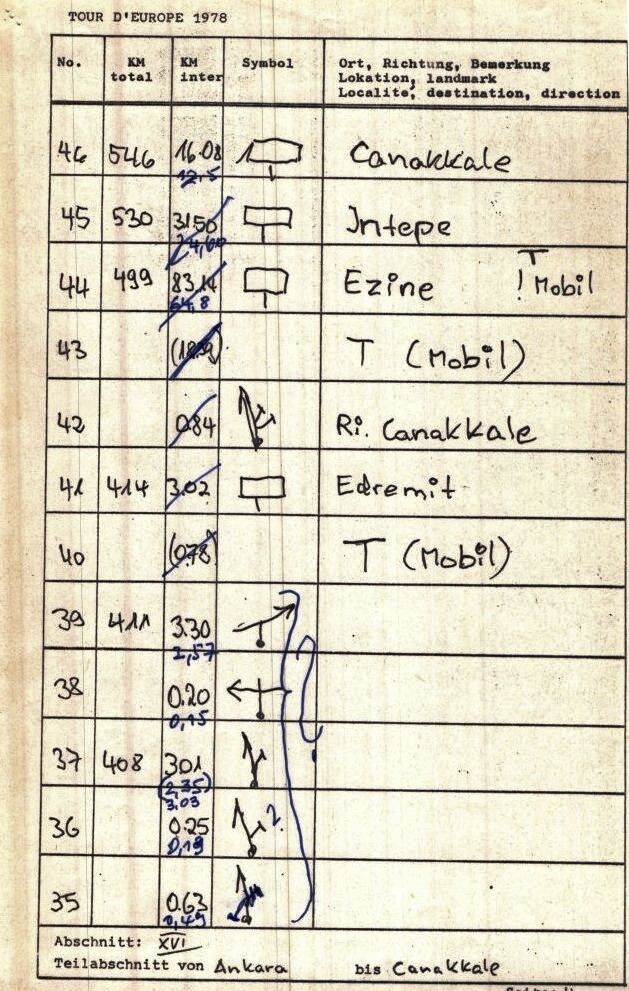 TOUR D'EUROPE 1978
No. KM total KM inter Symbol Ort, Richtung, Bemerkung
Lokation, landmark
Localite, destination, direction
46 546 16.08 Canakkale
12,5
45 530 31.50 Intepe
24,60
44 499 83.14 Ezine ! T Mobil
64,8
43 T (Mobil)
42 0.84 Ri. Canakkale
41 414 3.02 Edremit
40 (0.78) T (Mobil)
39 411 3.30
2,57
38 0.20
0,15
37 408 3.01
(2,35)
3.03
36 0.25 2.
0,19
35 0.63
0,49
Abschnitt: XVI
Teilabschnitt von Ankara bis Canakkale